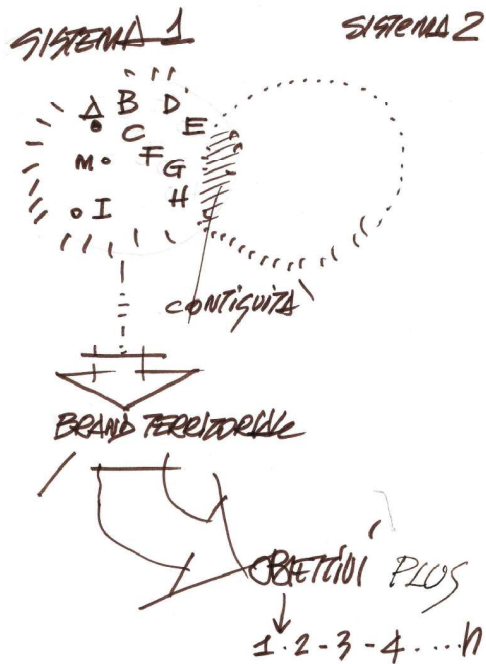 SISTEMA 1
SISTEMA 2
A B D
C E
M F G
I H
CONTIGUITA'
BRAND TERRITORIALE
OBIETTIVI PLUS
1 · 2 - 3 - 4 .... n